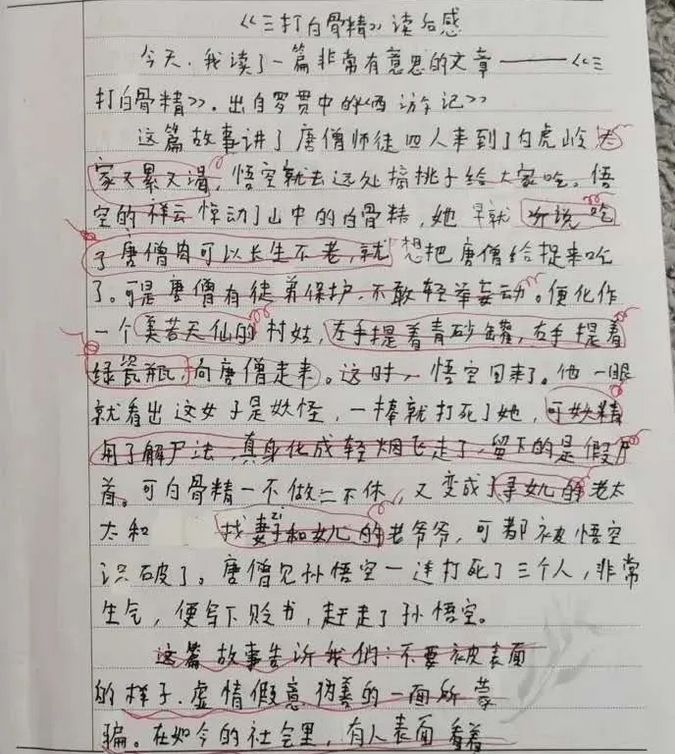 《三打白骨精》读后感
今天，我读了一篇非常有意思的文章——《三
打白骨精》。出自罗贯中的《西游记》
这篇故事讲了唐僧师徒四人来到了白虎岭，大
家又累又渴，悟空就去远处摘桃子给大家吃。悟
空的祥云惊动了山中的白骨精，她早就听说吃
了唐僧肉可以长生不老，就想把唐僧给捉来吃
了。可是唐僧有徒弟保护，不敢轻举妄动。便化作
一个美若天仙的村姑，左手提着青砂罐，右手提着
绿瓷瓶，向唐僧走来。这时，悟空回来了。他一眼
就看出这女子是妖怪，一棒就打死了她，可妖精
用了解尸法，真身化成轻烟飞走了，留下的是假尸
首。可白骨精一不做二不休，又变成了寻女儿的老太
太和找妻zi子和女儿的老爷爷，可都被悟空
识破了。唐僧见孙悟空一连打死了三个人，非常
生气，便写下贬书，赶走了孙悟空。
这篇故事告诉我们：不要被表面
的样子、虚情假意伪善的一面所蒙
骗。在如今的社会里，有人表面看着